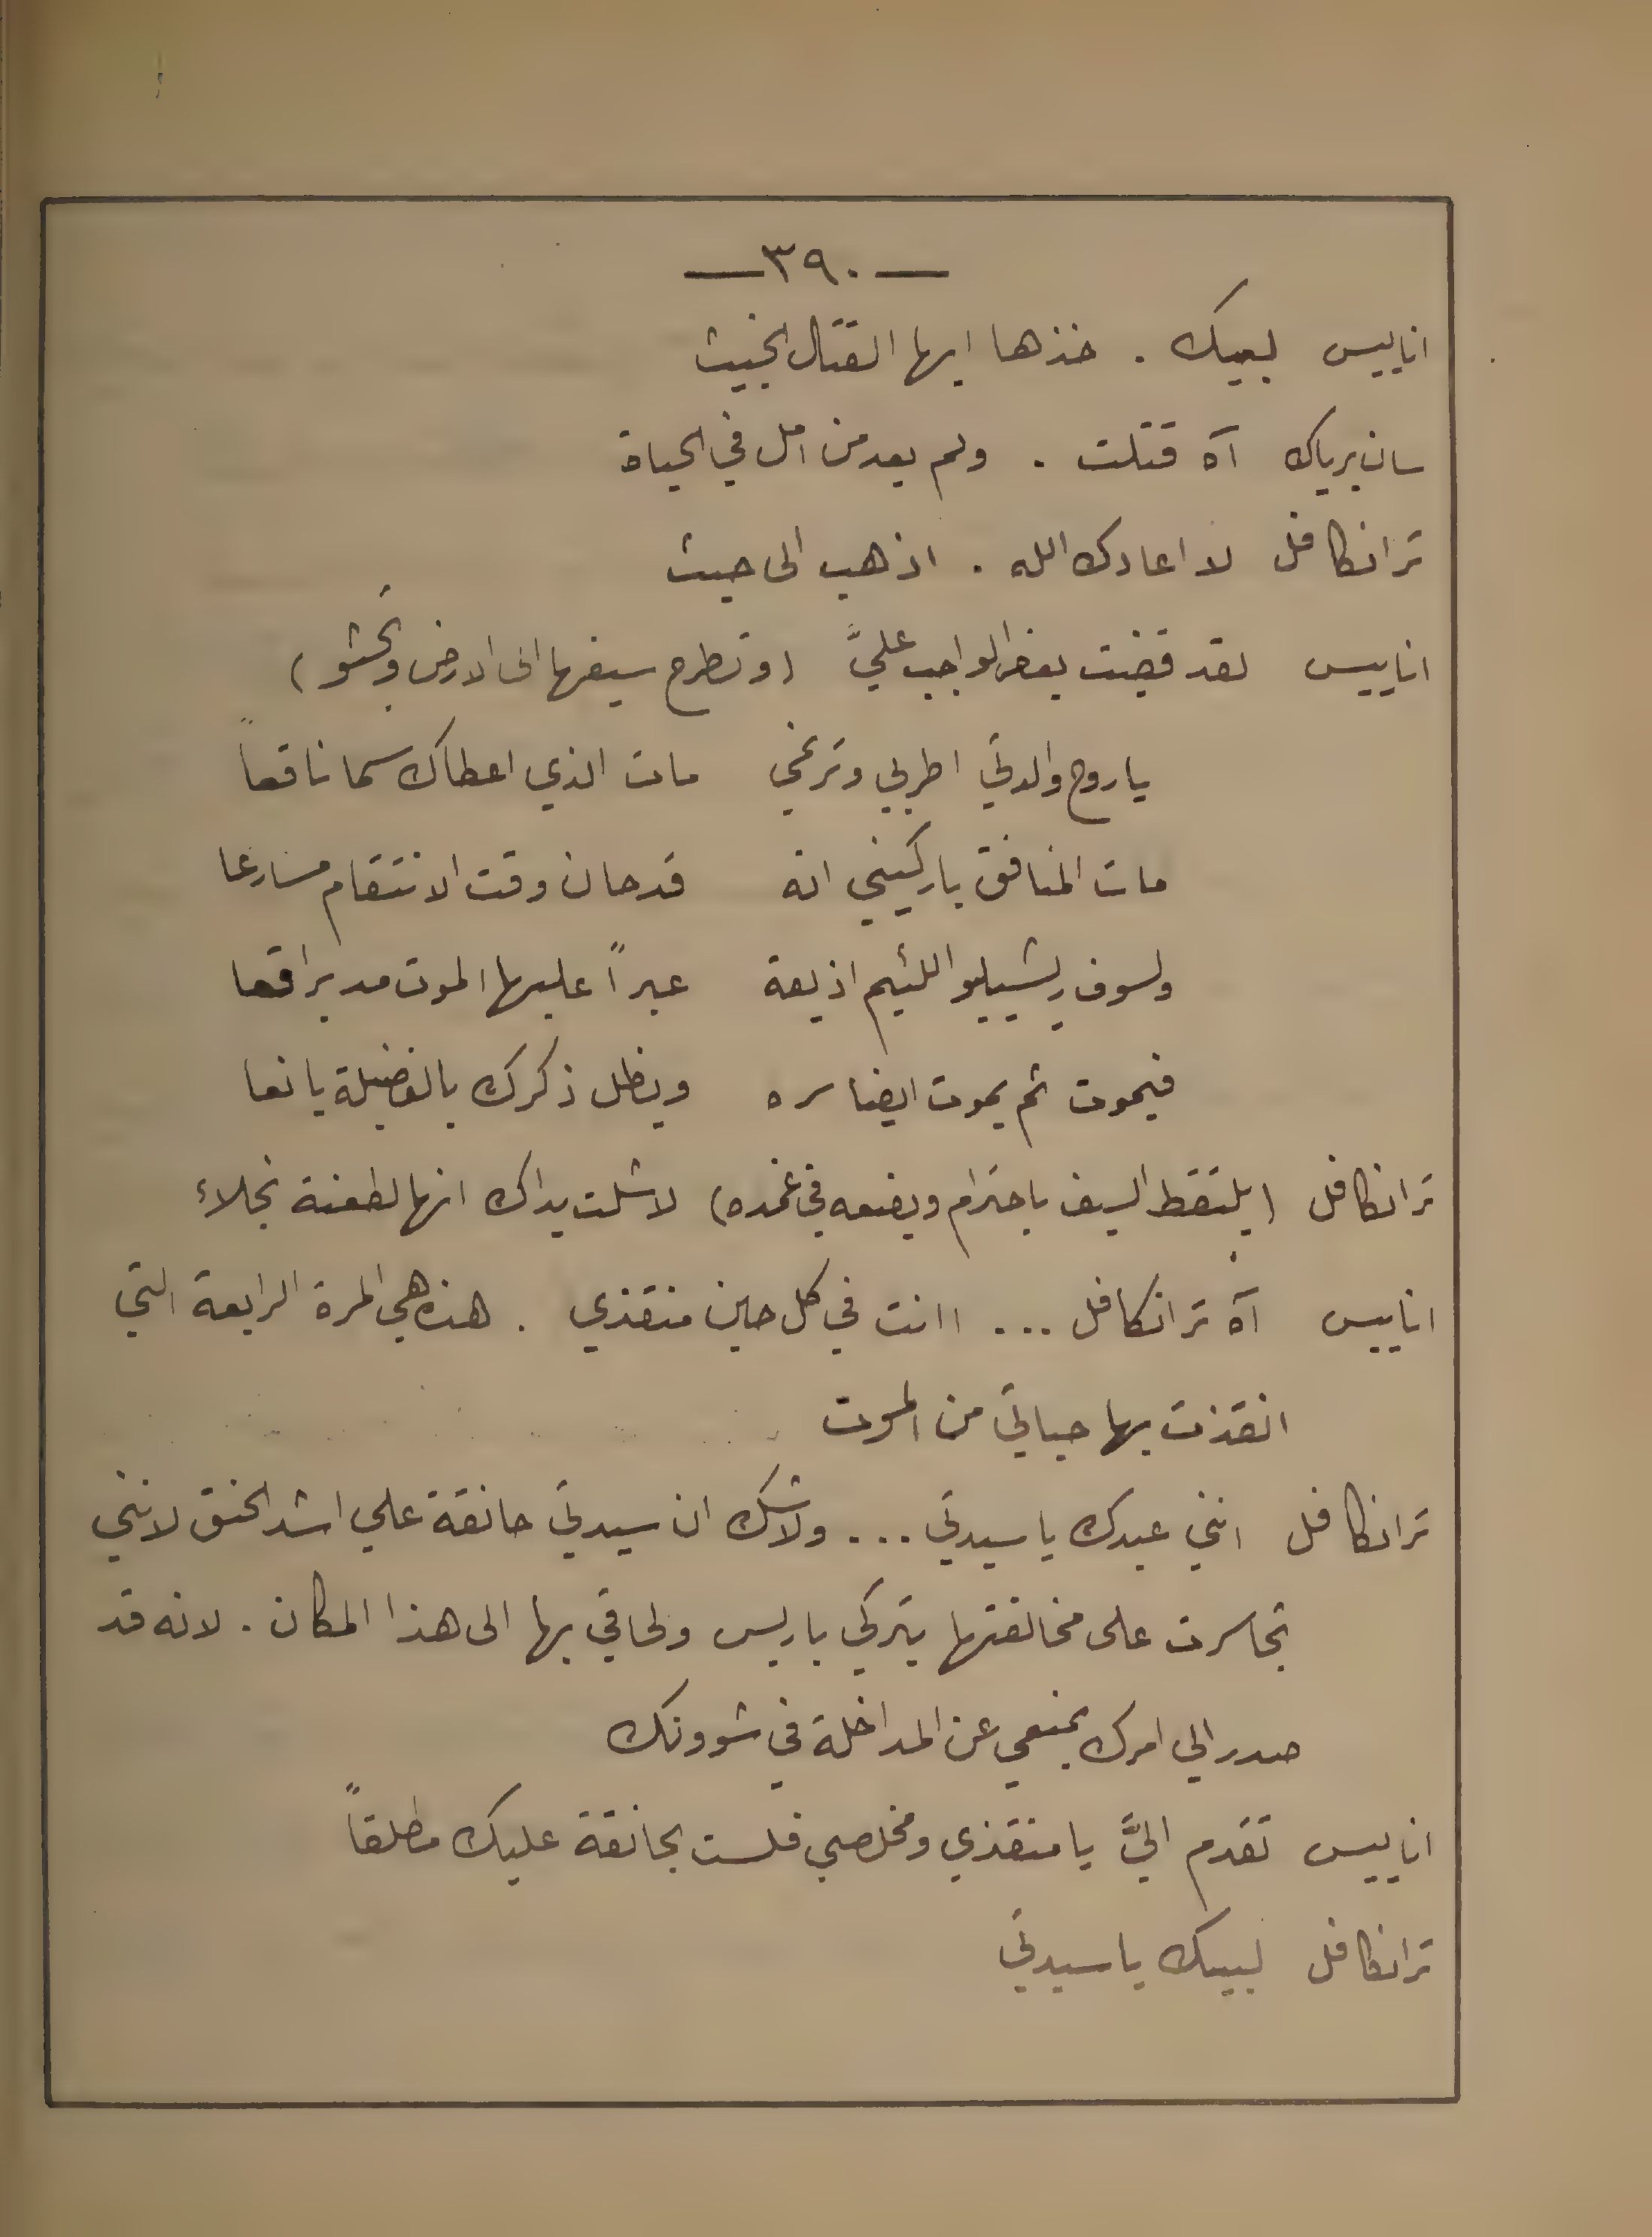 — ٣٩٠ —
اناييس لبيك . خذها ايها القتال الخبيث
سان برياك آه قتلت . ولم يعد من امل في الحياة
ترانكافل لا اعادك الله . اذهب الى حيث
اناييس لقد قضيت بعض الواجب عليَّ (وتطرح سيفها الى الارض وتجثو)
ياروح والدتي اطربي وترنمي مات الذي اعطاك سما ناقعاً
مات المنافق باركيني انه قد حان وقت الانتقام مسارعا
ولسوف ريشيليو اللئيم اذيعة عبراً عليها الموت مد براقعا
فيموت ثم يموت ايضا سره ويظل ذكرك بالفضيلة يانعا
ترانكافل (يلتقط السيف باحترام ويضعه في غمده) لا شلت يداك انها لطعنة نجلاء
اناييس آه ترانكافل ... اانت في كل حين منقذي . هذه هي المرة الرابعة التي
انقذت بها حياتي من الموت
ترانكافل انني عبدك يا سيدتي ... ولاشك ان سيدتي حانقة علي اشد الحنق لانني
تجاسرت على مخالفتها بتركي باريس ولحاقي بها الى هذا المكان . لانه قد
صدر الي امرك يمنعي عن المداخلة في شوونك
اناييس تقدم اليَّ يا منقذي ومخلصي فلست بحانقة عليك مطلقاً
ترانكافل لبيك يا سيدتي